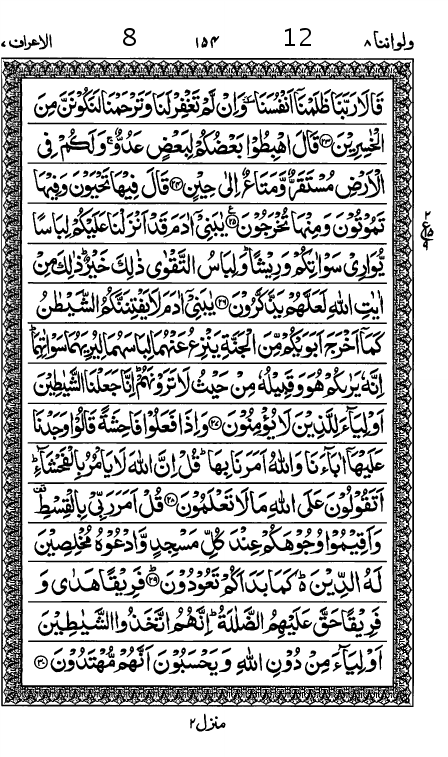 ولواننا ٨ 12 ١٥٤ 8 الاعراف ٧
قَالَا رَبَّنَا ظَلَمْنَا اَنْفُسَنَا وَاِنْ لَّمْ تَغْفِرْ لَنَا وَتَرْحَمْنَا لَنَكُوْنَنَّ مِنَ
الْخٰسِرِيْنَ ﴿٢٣﴾ قَالَ اهْبِطُوْا بَعْضُكُمْ لِبَعْضٍ عَدُوٌّ ۚ وَلَكُمْ فِى
الْاَرْضِ مُسْتَقَرٌّ وَّمَتَاعٌ اِلٰى حِيْنٍ ﴿٢٤﴾ قَالَ فِيْهَا تَحْيَوْنَ وَفِيْهَا
تَمُوْتُوْنَ وَمِنْهَا تُخْرَجُوْنَ ﴿٢٥﴾ يٰبَنِىْٓ اٰدَمَ قَدْ اَنْزَلْنَا عَلَيْكُمْ لِبَاسًا
يُّوَارِىْ سَوْاٰتِكُمْ وَرِيْشًا ؕ وَلِبَاسُ التَّقْوٰى ذٰلِكَ خَيْرٌ ؕ ذٰلِكَ مِنْ
اٰيٰتِ اللّٰهِ لَعَلَّهُمْ يَذَّكَّرُوْنَ ﴿٢٦﴾ يٰبَنِىْٓ اٰدَمَ لَا يَفْتِنَنَّكُمُ الشَّيْطٰنُ
كَمَآ اَخْرَجَ اَبَوَيْكُمْ مِّنَ الْجَنَّةِ يَنْزِعُ عَنْهُمَا لِبَاسَهُمَا لِيُرِيَهُمَا سَوْاٰتِهِمَا ؕ
اِنَّهٗ يَرٰىكُمْ هُوَ وَقَبِيْلُهٗ مِنْ حَيْثُ لَا تَرَوْنَهُمْ ؕ اِنَّا جَعَلْنَا الشَّيٰطِيْنَ
اَوْلِيَآءَ لِلَّذِيْنَ لَا يُؤْمِنُوْنَ ﴿٢٧﴾ وَاِذَا فَعَلُوْا فَاحِشَةً قَالُوْا وَجَدْنَا
عَلَيْهَآ اٰبَآءَنَا وَاللّٰهُ اَمَرَنَا بِهَا ؕ قُلْ اِنَّ اللّٰهَ لَا يَاْمُرُ بِالْفَحْشَآءِ ؕ
اَتَقُوْلُوْنَ عَلَى اللّٰهِ مَا لَا تَعْلَمُوْنَ ﴿٢٨﴾ قُلْ اَمَرَ رَبِّىْ بِالْقِسْطِ
وَاَقِيْمُوْا وُجُوْهَكُمْ عِنْدَ كُلِّ مَسْجِدٍ وَّادْعُوْهُ مُخْلِصِيْنَ
لَهُ الدِّيْنَ ؕ كَمَا بَدَاَكُمْ تَعُوْدُوْنَ ﴿٢٩﴾ فَرِيْقًا هَدٰى وَ
فَرِيْقًا حَقَّ عَلَيْهِمُ الضَّلٰلَةُ ؕ اِنَّهُمُ اتَّخَذُوا الشَّيٰطِيْنَ
اَوْلِيَآءَ مِنْ دُوْنِ اللّٰهِ وَيَحْسَبُوْنَ اَنَّهُمْ مُّهْتَدُوْنَ ﴿٣٠﴾
منزل ٢